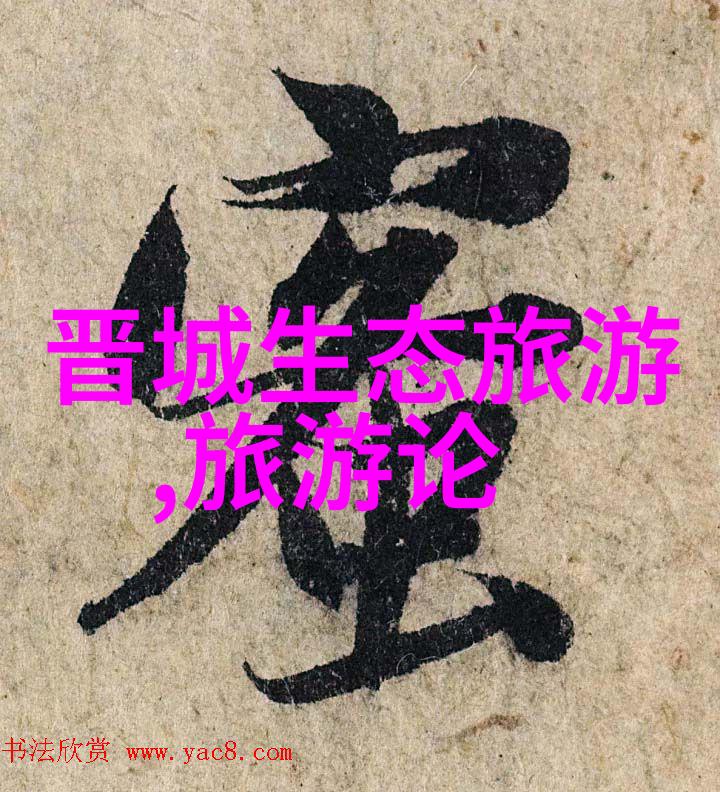 晋城生态旅游
,旅游论
书法欣赏 www.yac8.com